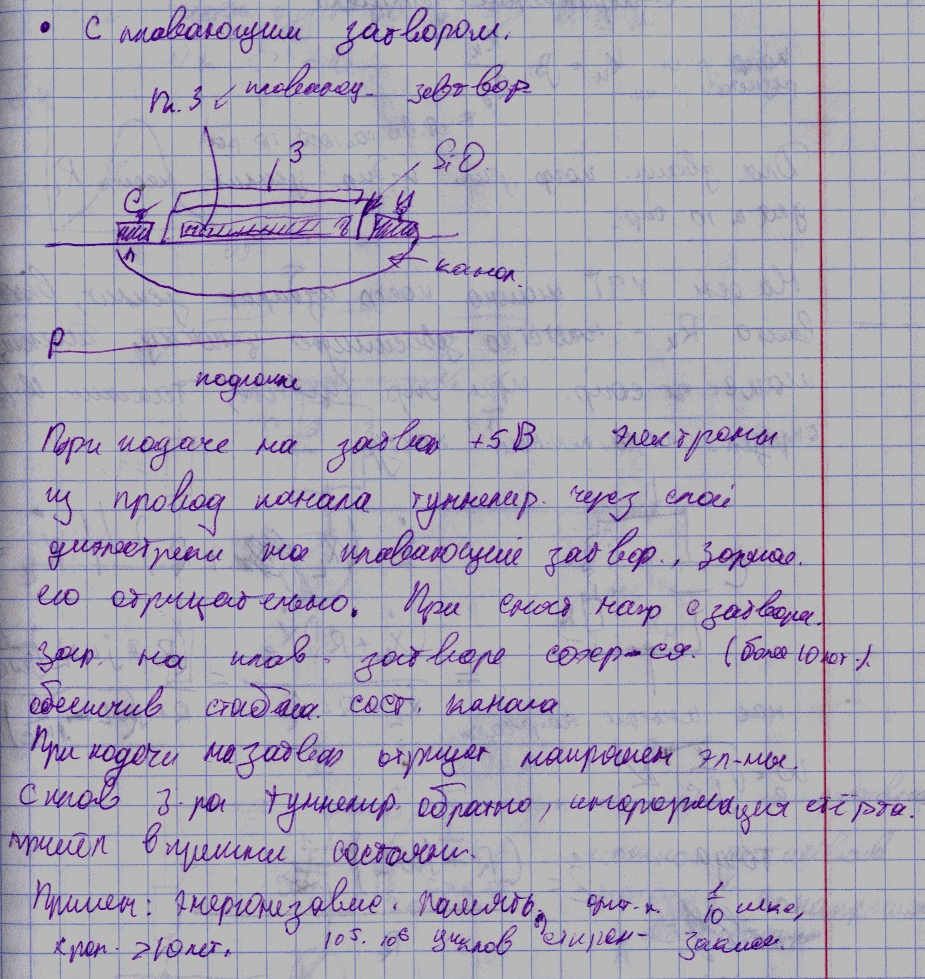 • С плавающим затвором.
Пл. З плавающ. затвор
З SiO
С И
n
канал.
P
подложка
При подаче на затвор +5В электроны
из провод канала туннелир. через слой
диэлектрика на плавающий затвор, заряжае.
его отрицательно. При снят напр с затвора.
зар. на плав. затворе сохер-ся. (более 10 лет.)
обеспечив стабил. сост. канала
При подачи на затвор отрицат напряжен эл-ны.
С плав з-ра туннелир. обратно, информация стёрта.
в прежни состояни.
Примен: Энергонезавис. память, 1/10 мкс,
хран. >10 лет. 10⁵. 10⁶ циклов стиран- записи.